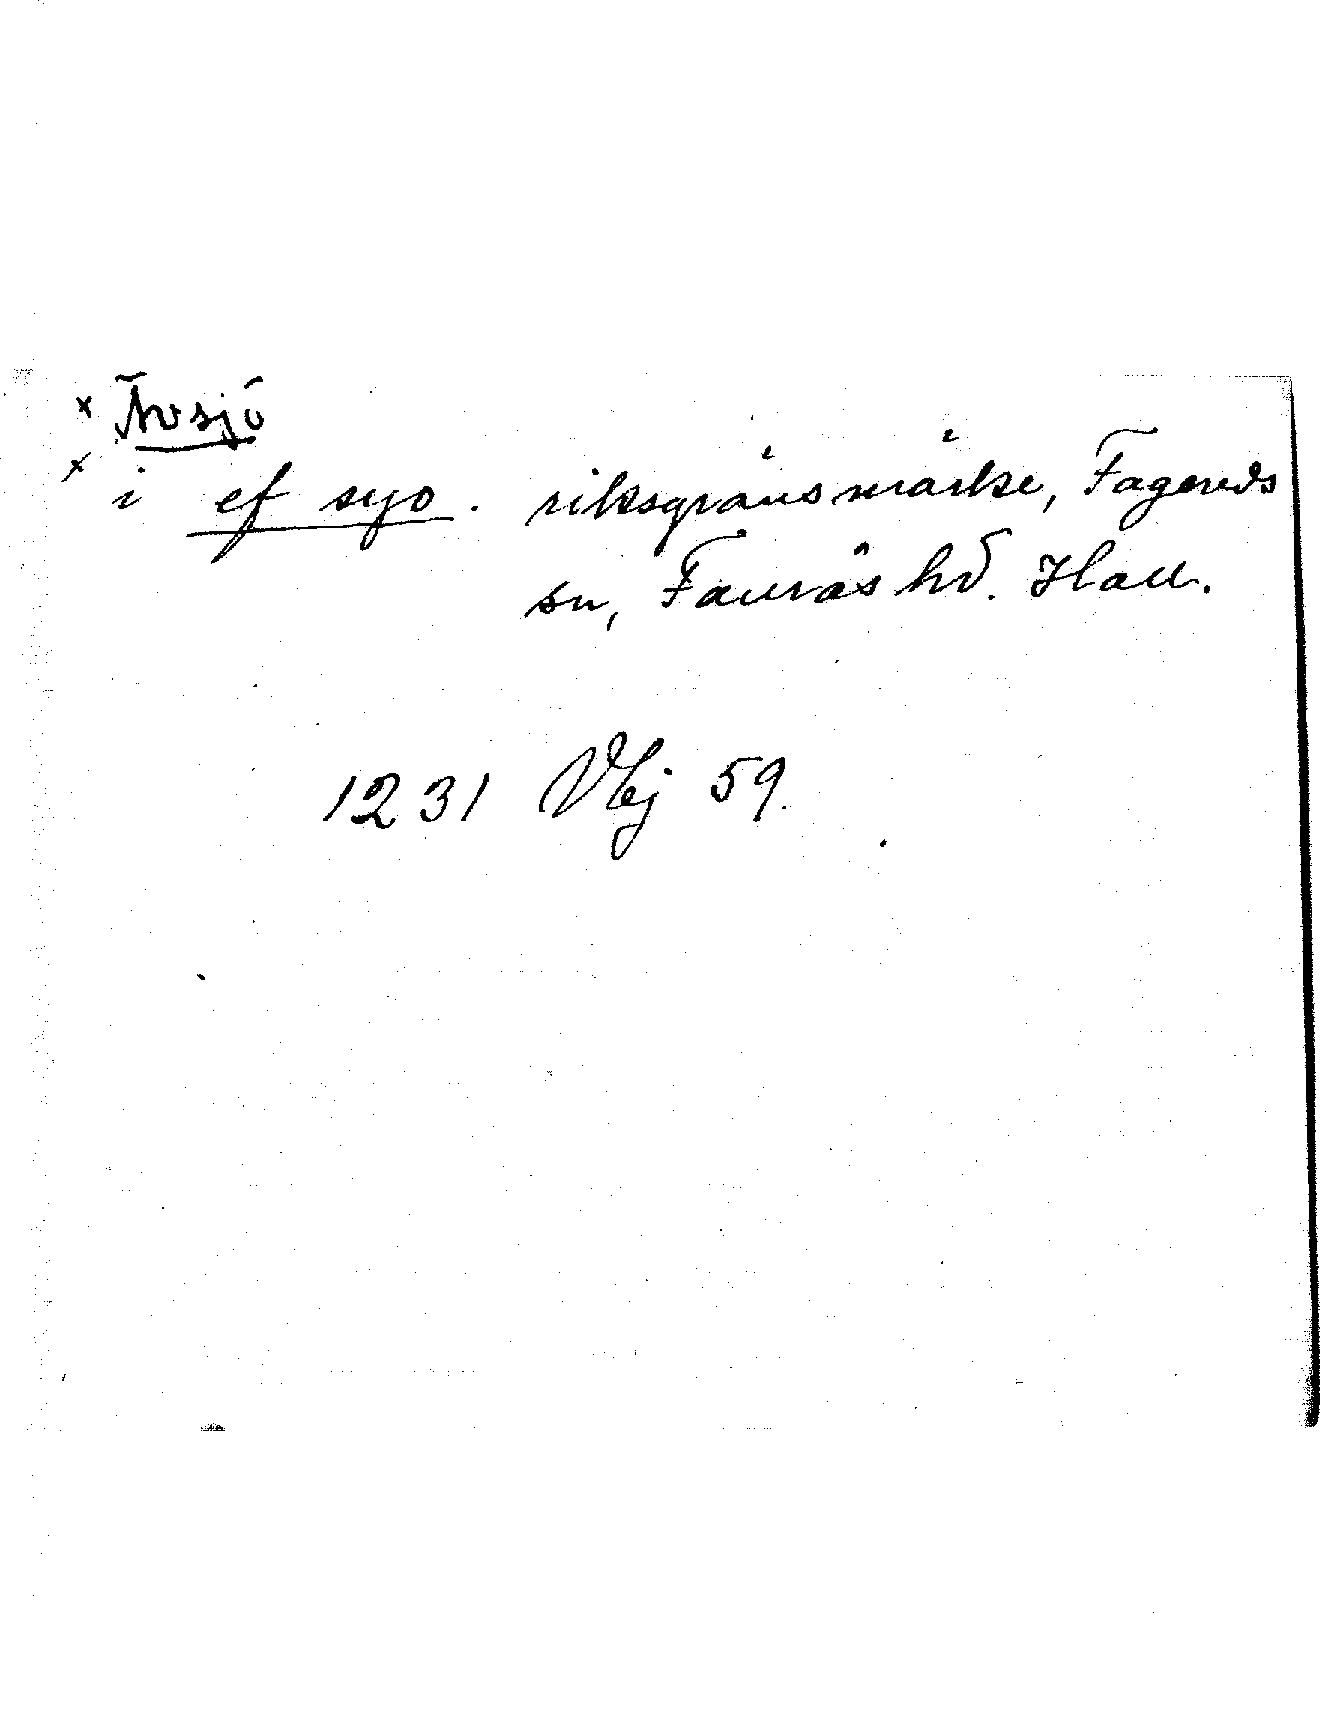 x Ävsjö
x i ef syo. riksgränsmärke, Fagereds
sn, Faurås hd. Hall.
1231 Vbj 59.